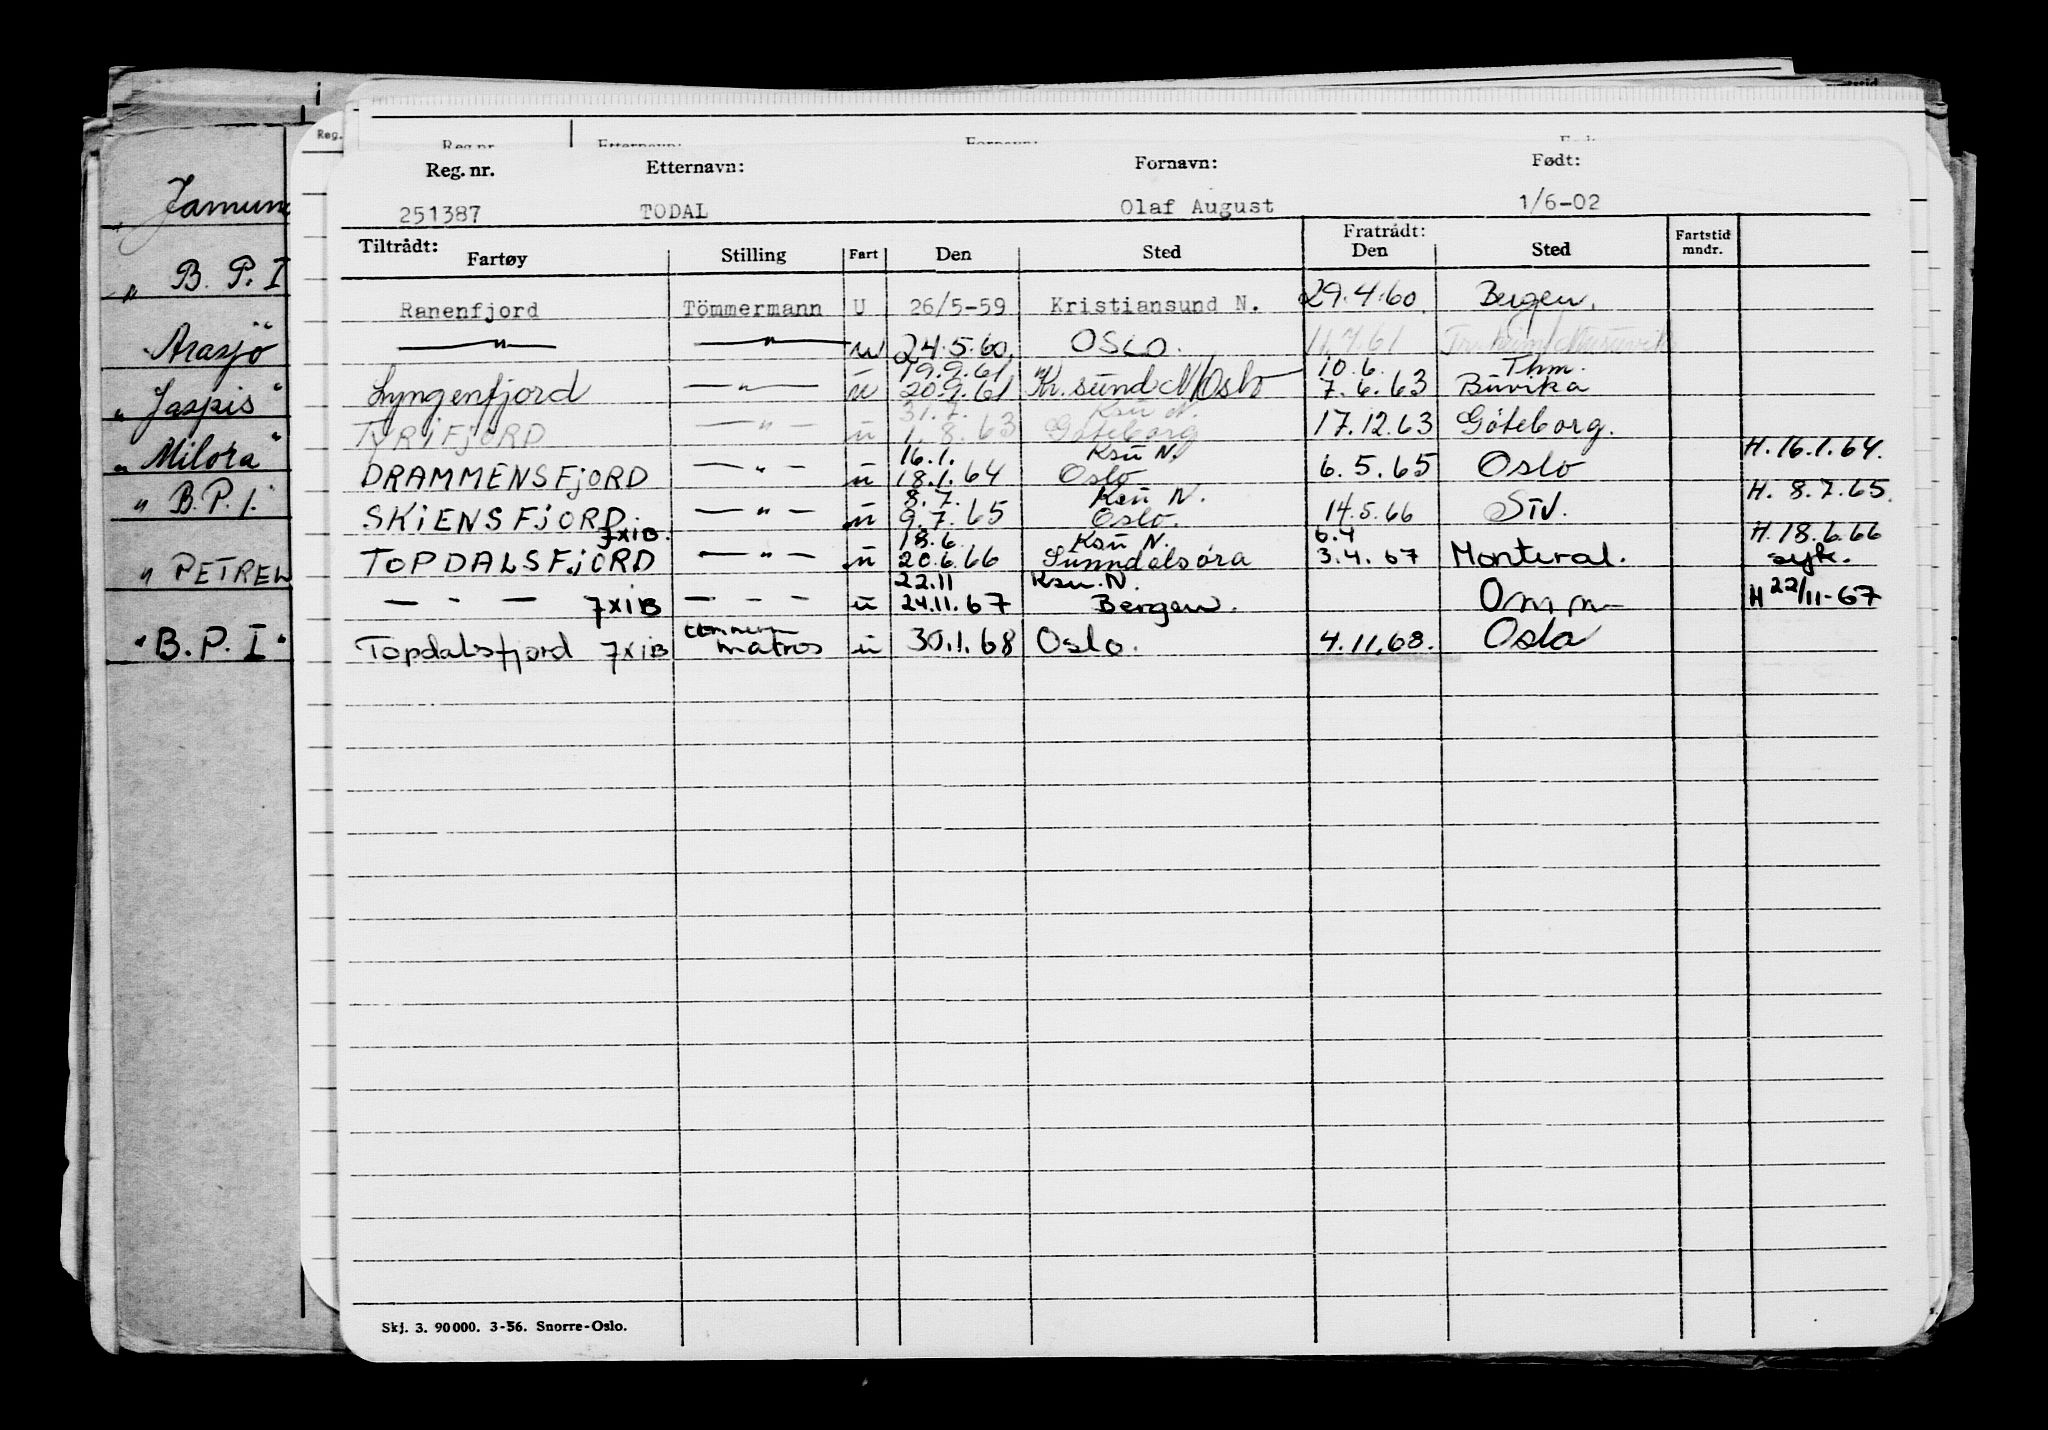 Jamun
„ B. P. I
Arasjö"
„ Jaspis"
„ Milora"
„ B. P. I.
„ PETREL
"B. P. I"
Reg.
Reg. nr. Etternavn: Fornavn: Født:
251387 TODAL Olaf August 1/6-02
Tiltrådt: Fratrådt: Fartstid
Fartøy Stilling Fart Den Sted Den Sted mndr.
Ranenfjord Tömmermann U 26/5-59 Kristiansund N. 29.4.60. Bergen.
— " — — " — u 24.5.60. OSLO. 11.7.61
19.9.61 10.6. Thm.
Lyngenfjord — " — u 20.9.61 Kr.sund N/Oslo 7.6.63 Buvika
31.7. Ksu N.
TYRIFJORD — " — u 1.8.63 Göteborg 17.12.63 Göteborg.
16.1. Ksu N. H. 16.1.64.
DRAMMENSFJORD — " — u 18.1.64 Oslo 6.5.65 Oslo
8.7. Ksu N. H. 8.7.65.
SKIENSFJORD. — " — u 9.7.65 Oslo. 14.5.66 Stv.
7XIB. 18.6. Ksu N. 6.4 H. 18.6.66
TOPDALSFJORD — " — u 20.6.66 Sunndalsøra 3.4.67 Monteral. syk.
22.11 Ksu. N.
— - — 7XIB — - — - u 24.11.67 Bergen. Omm H 22/11-67
Topdalsfjord 7XIB matros u 30.1.68 Oslo. 4.11.68. Oslo
Skj. 3. 90000. 3-56. Snorre-Oslo.